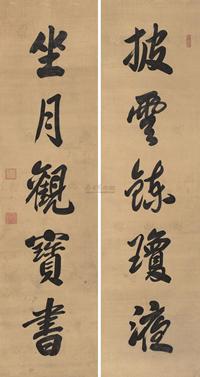 披雲鍊瓊液
坐月觀寶書